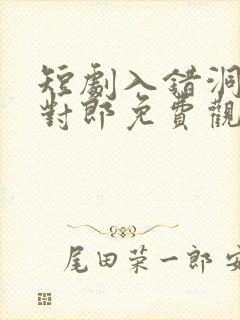 短劇入錯洞
對郎免費觀
尾田荣一郎 安